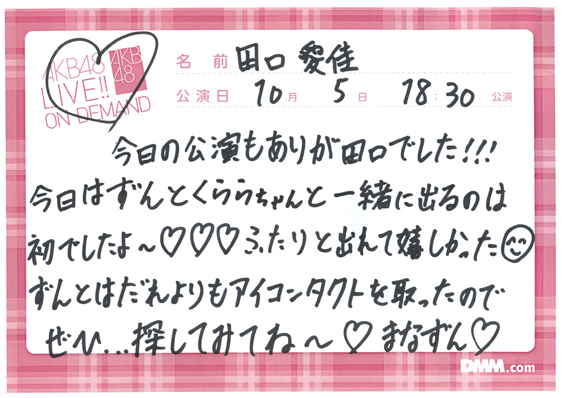 AKB48
LIVE!!
ON DEMAND
AKB
48
名 前 田口 愛佳
公演日 10月 5日 18:30 公演
今日の公演もありが田口でした!!!
今日はずんとくららちゃんと一緒に出るのは
初でしたよ～♡♡♡ふたりと出れて嬉しかった😊
ずんとはだれよりもアイコンタクトを取ったので
ぜひ...探してみてね～♡まなずん♡
DMM.com